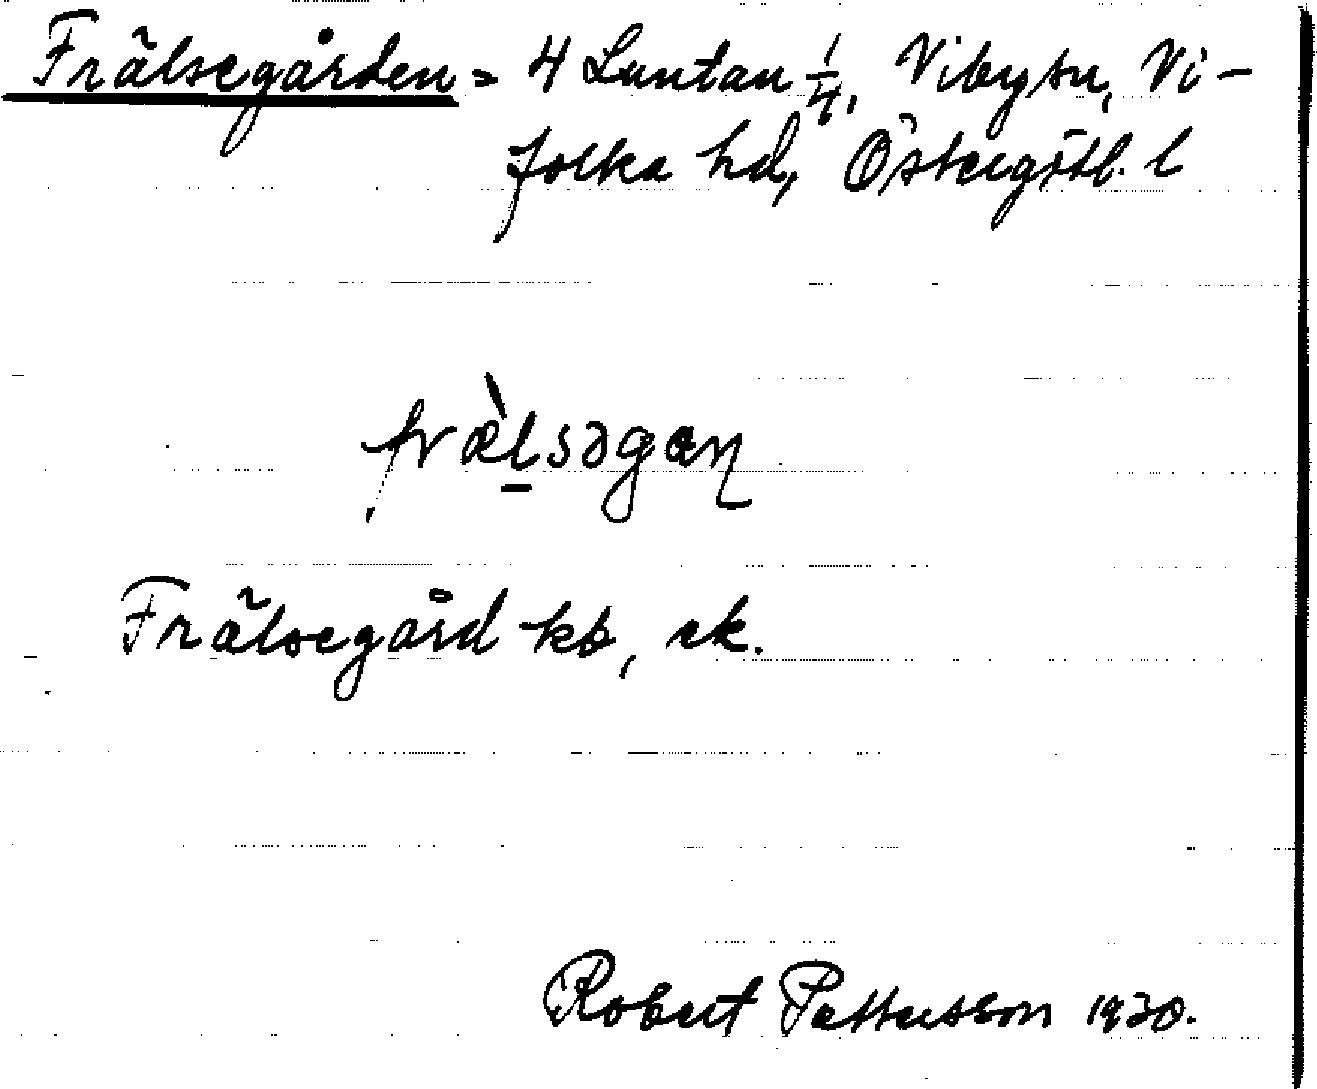 Frälsegården = 4 Luntan 1/4, Viby sn, Vi-
folka hd, Östergötl. l
fræ̀lsəgaɳ
Frälsegård kb, ek.
Robert Pettersson 1930.